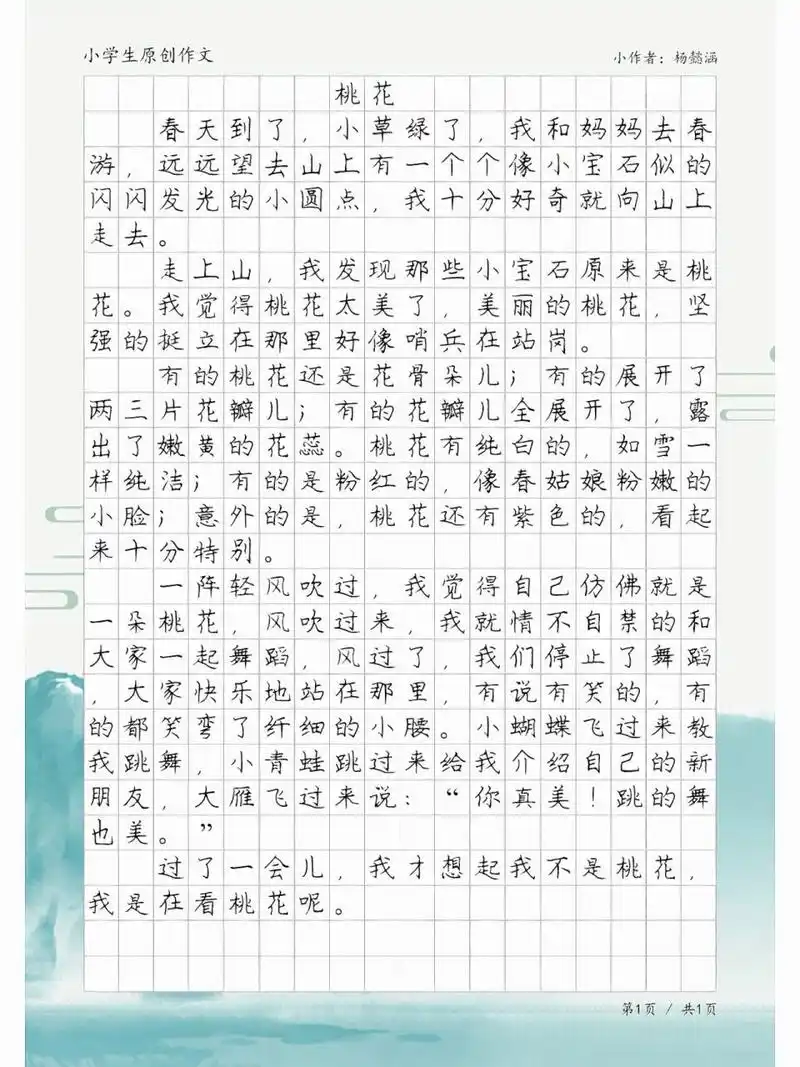 小学生原创作文
小作者：杨懿涵
桃花
春天到了，小草绿了，我和妈妈去春
游，远远望去山上有一个个像小宝石似的
闪闪发光的小圆点，我十分好奇就向山上
走去。
走上山，我发现那些小宝石原来是桃
花。我觉得桃花太美了，美丽的桃花，坚
强的挺立在那里好像哨兵在站岗。
有的桃花还是花骨朵儿；有的展开了
两三片花瓣儿；有的花瓣儿全展开了，露
出了嫩黄的花蕊。桃花有纯白的，如雪一
样纯洁；有的是粉红的，像春姑娘粉嫩的
小脸；意外的是，桃花还有紫色的，看起
来十分特别。
一阵轻风吹过，我觉得自己仿佛就是
一朵桃花，风吹过来，我就情不自禁的和
大家一起舞蹈，风过了，我们停止了舞蹈
，大家快乐地站在那里，有说有笑的，有
的都笑弯了纤细的小腰。小蝴蝶飞过来教
我跳舞，小青蛙跳过来给我介绍自己的新
朋友，大雁飞过来说：“你真美！跳的舞
也美。”
过了一会儿，我才想起我不是桃花，
我是在看桃花呢。
第1页 / 共1页